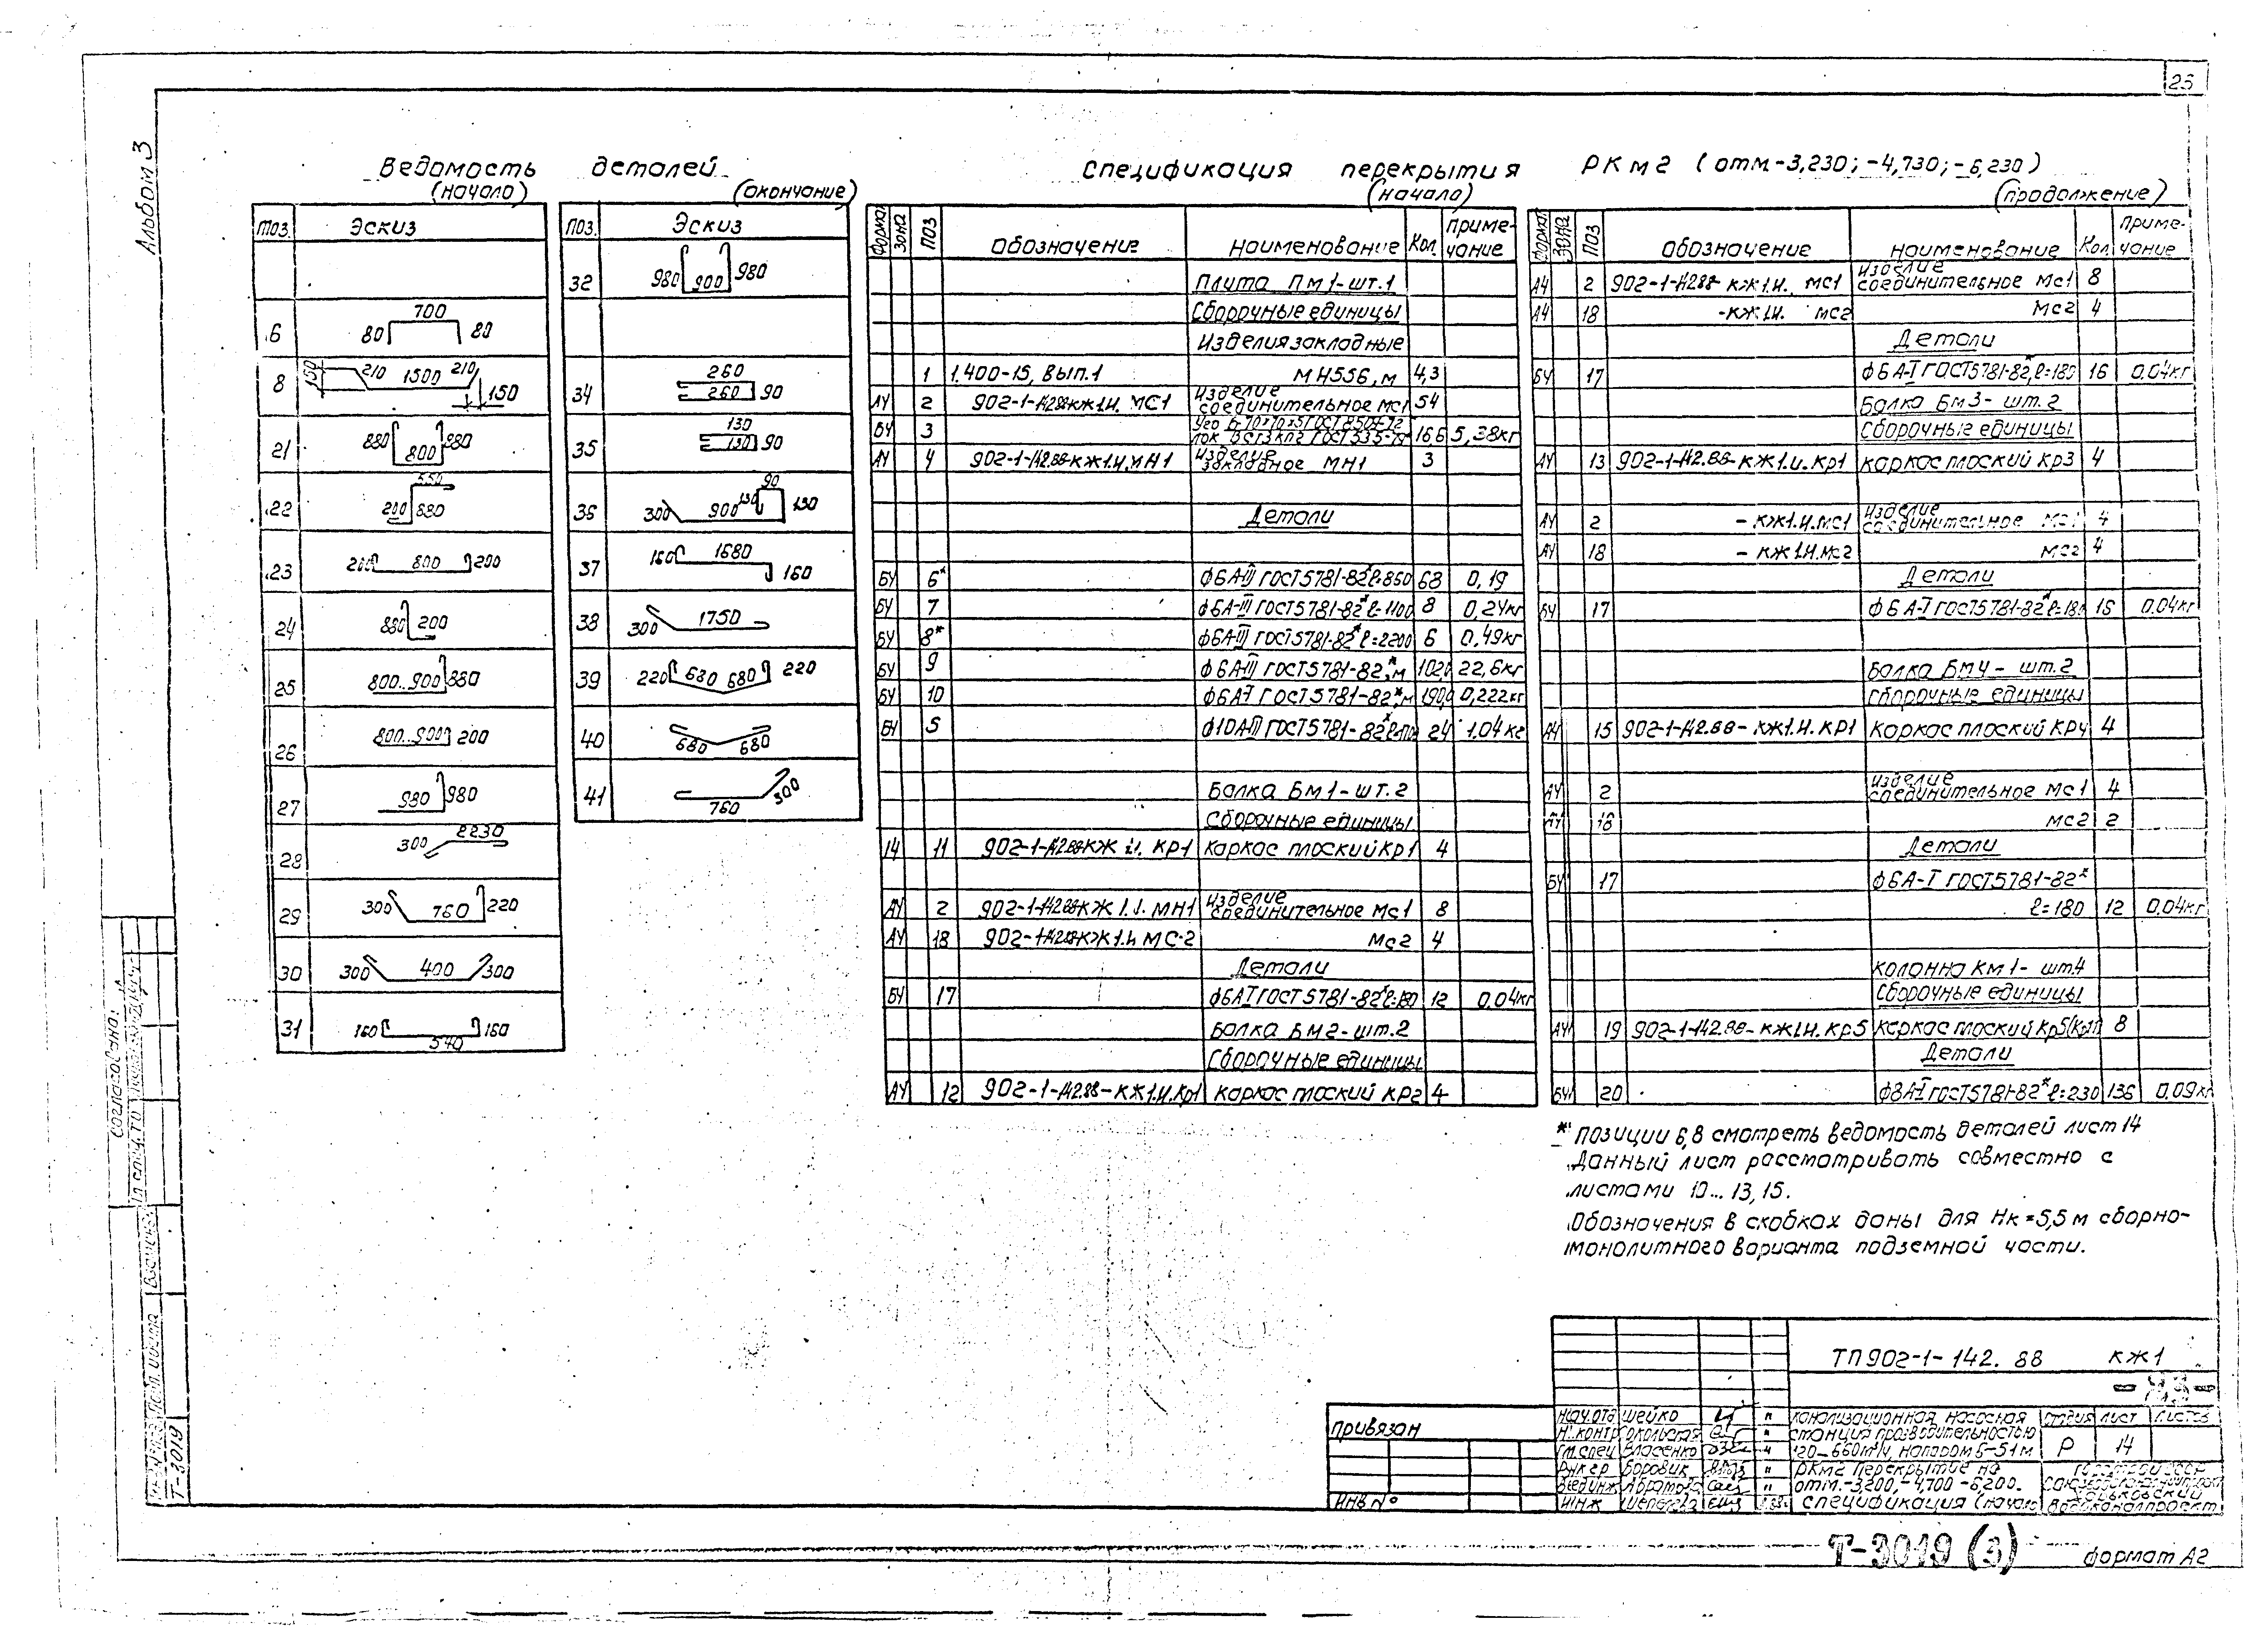 25
Альбом 3
Ведомость деталей
(начало)
(окончание)
поз. Эскиз
6 80 700 80
8 150 210 1500 210 150
21 880 800 880
22 550 200 880
23 200 800 200
24 880 200
25 800..900 880
26 800..900 200
27 980 980
28 300 2230
29 300 760 220
30 300 400 300
31 160 540 160
поз. Эскиз
32 980 900 980
34 260 260 90
35 130 130 90
36 300 900 130 90 130
37 160 1680 160
38 300 1750
39 220 680 680 220
40 680 680
41 760 300
Спецификация перекрытия РКм2 (отм-3,230; -4,730; -6,230)
(начало)
(продолжение)
Формат Зона Поз Обозначение Наименование Кол. Примечание
Плита Пм1-шт.1
Сборочные единицы
Изделия закладные
1 1.400-15, вып.1 МН556, м 4,3
АЧ 2 902-1-142.88-КЖ1.И. МС1 Изделие соединительное мс1 54
БЧ 3 5,38кг
АЧ 4 902-1-142.88-КЖ1.И.МН1 Изделие закладное МН1 3
Детали
БЧ 6* ф6А-III ГОСТ5781-82* ℓ=860 68 0,19
БЧ 7 ф6А-III ГОСТ5781-82* ℓ=1100 8 0,24кг
БЧ 8* ф6А-III ГОСТ5781-82* ℓ=2200 6 0,49кг
БЧ 9 ф6А-III ГОСТ5781-82*, м 1020 22,6кг
БЧ 10 ф6А-I ГОСТ5781-82*, м 190,0 0,222кг
БЧ 5 ф10А-III ГОСТ5781-82* 24 1.04кг
Балка Бм1-шт.2
Сборочные единицы
11 902-1-142.88-КЖ1.И. КР1 Каркас плоский кр1 4
АЧ 2 902-1-142.88-КЖ1.И. МН1 Изделие соединительное мс1 8
АЧ 18 902-1-142.88-КЖ1.И МС2 Мс2 4
Детали
БЧ 17 ф6А-I ГОСТ5781-82* ℓ=180 12 0.04кг
Балка Бм2-шт.2
Сборочные единицы
АЧ 12 902-1-142.88-КЖ1.И.Кр1 Каркас плоский кр2 4
Формат Зона Поз Обозначение Наименование Кол. Примечание
А4 2 902-1-142.88-КЖ1.И. МС1 Изделие соединительное мс1 8
А4 18 -КЖ1.И. МС2 Мс2 4
Детали
БЧ 17 ф6А-I ГОСТ5781-82* ℓ=180 16 0.04кг
Балка Бм3-шт.2
Сборочные единицы
АЧ 13 902-1-142.88-КЖ1.И.Кр1 Каркас плоский кр3 4
АЧ 2 -КЖ1.И.МС1 Изделие соединительное мс1 4
АЧ 18 -КЖ1.И.МС2 мс2 4
Детали
БЧ 17 ф6А-I ГОСТ5781-82* ℓ=180 16 0.04кг
Балка Бм4-шт.2
Сборочные единицы
АЧ 15 902-1-142.88-КЖ1.И.КР1 Каркас плоский КР4 4
АЧ 2 Изделие соединительное мс1 4
АЧ 18 мс2 2
Детали
БЧ 17 ф6А-I ГОСТ5781-82*
ℓ=180 12 0,04кг
Колонна Км1-шт.4
Сборочные единицы
АЧ 19 902-1-142.88-КЖ1.И.Кр5 Каркас плоский Кр5 8
Детали
БЧ 20 ф8А-I ГОСТ5781-82* ℓ=230 136 0,09кг
* Позиции 6,8 смотреть ведомость деталей лист 14
Данный лист рассматривать совместно с
листами 10... 13, 15.
Обозначения в скобках даны для Нк=5,5 м сборно-
монолитного варианта подземной части.
Согласовано:
Т-3019
Привязан
Инв №
ТП902-1-142.88 КЖ1
Нач.отд Шейко
Н.контр Окольская
Гл.спец Власенко
Рук гр Боровик
Инж
Канализационная насосная
станция производительностью
120-660м³/ч, напором 5-51м
РКм2 Перекрытие на
отм.-3,200,-4,700-6,200.
Спецификация (начало
Стадия Лист Листов
Р 14
Харьковский
Водоканалпроект
Т-3019 (3)
Формат А2